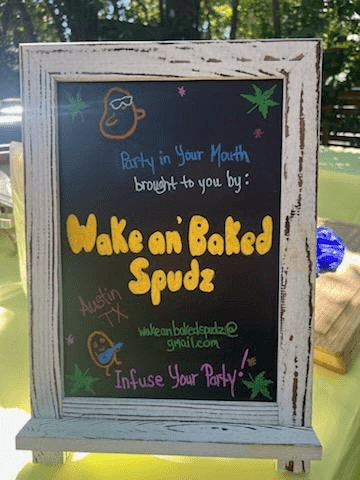 Party in Your Mouth
brought to you by:
Wake an' Baked
Spudz
Austin
TX
wakeanbakedspudz@
gmail.com
Infuse Your Party!